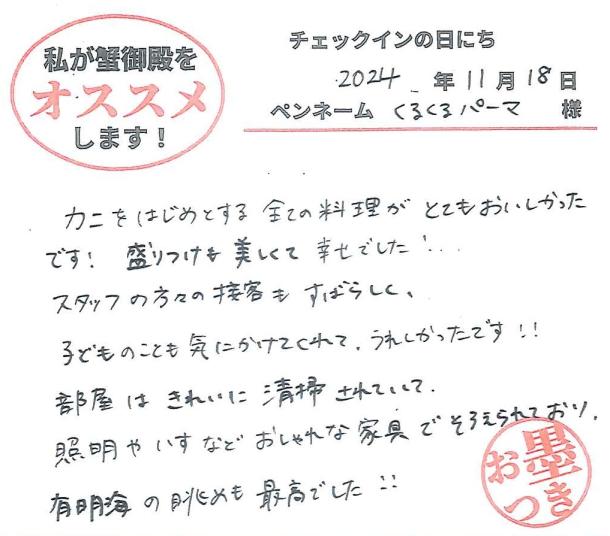 私が蟹御殿を
オススメ
します！
チェックインの日にち
2024 年 11月 18日
ペンネーム くるくるパーマ 様
カニをはじめとする 全ての料理が とてもおいしかった
です! 盛りつけも 美しくて 幸せでした!..
スタッフの方々の接客も すばらしく、
子どものことも 気にかけてくれて、うれしかったです!!
部屋は きれいに 清掃 されていて、
照明や いすなど おしゃれな 家具で そろえられており、
有明海 の眺めも 最高でした !!
お墨つき